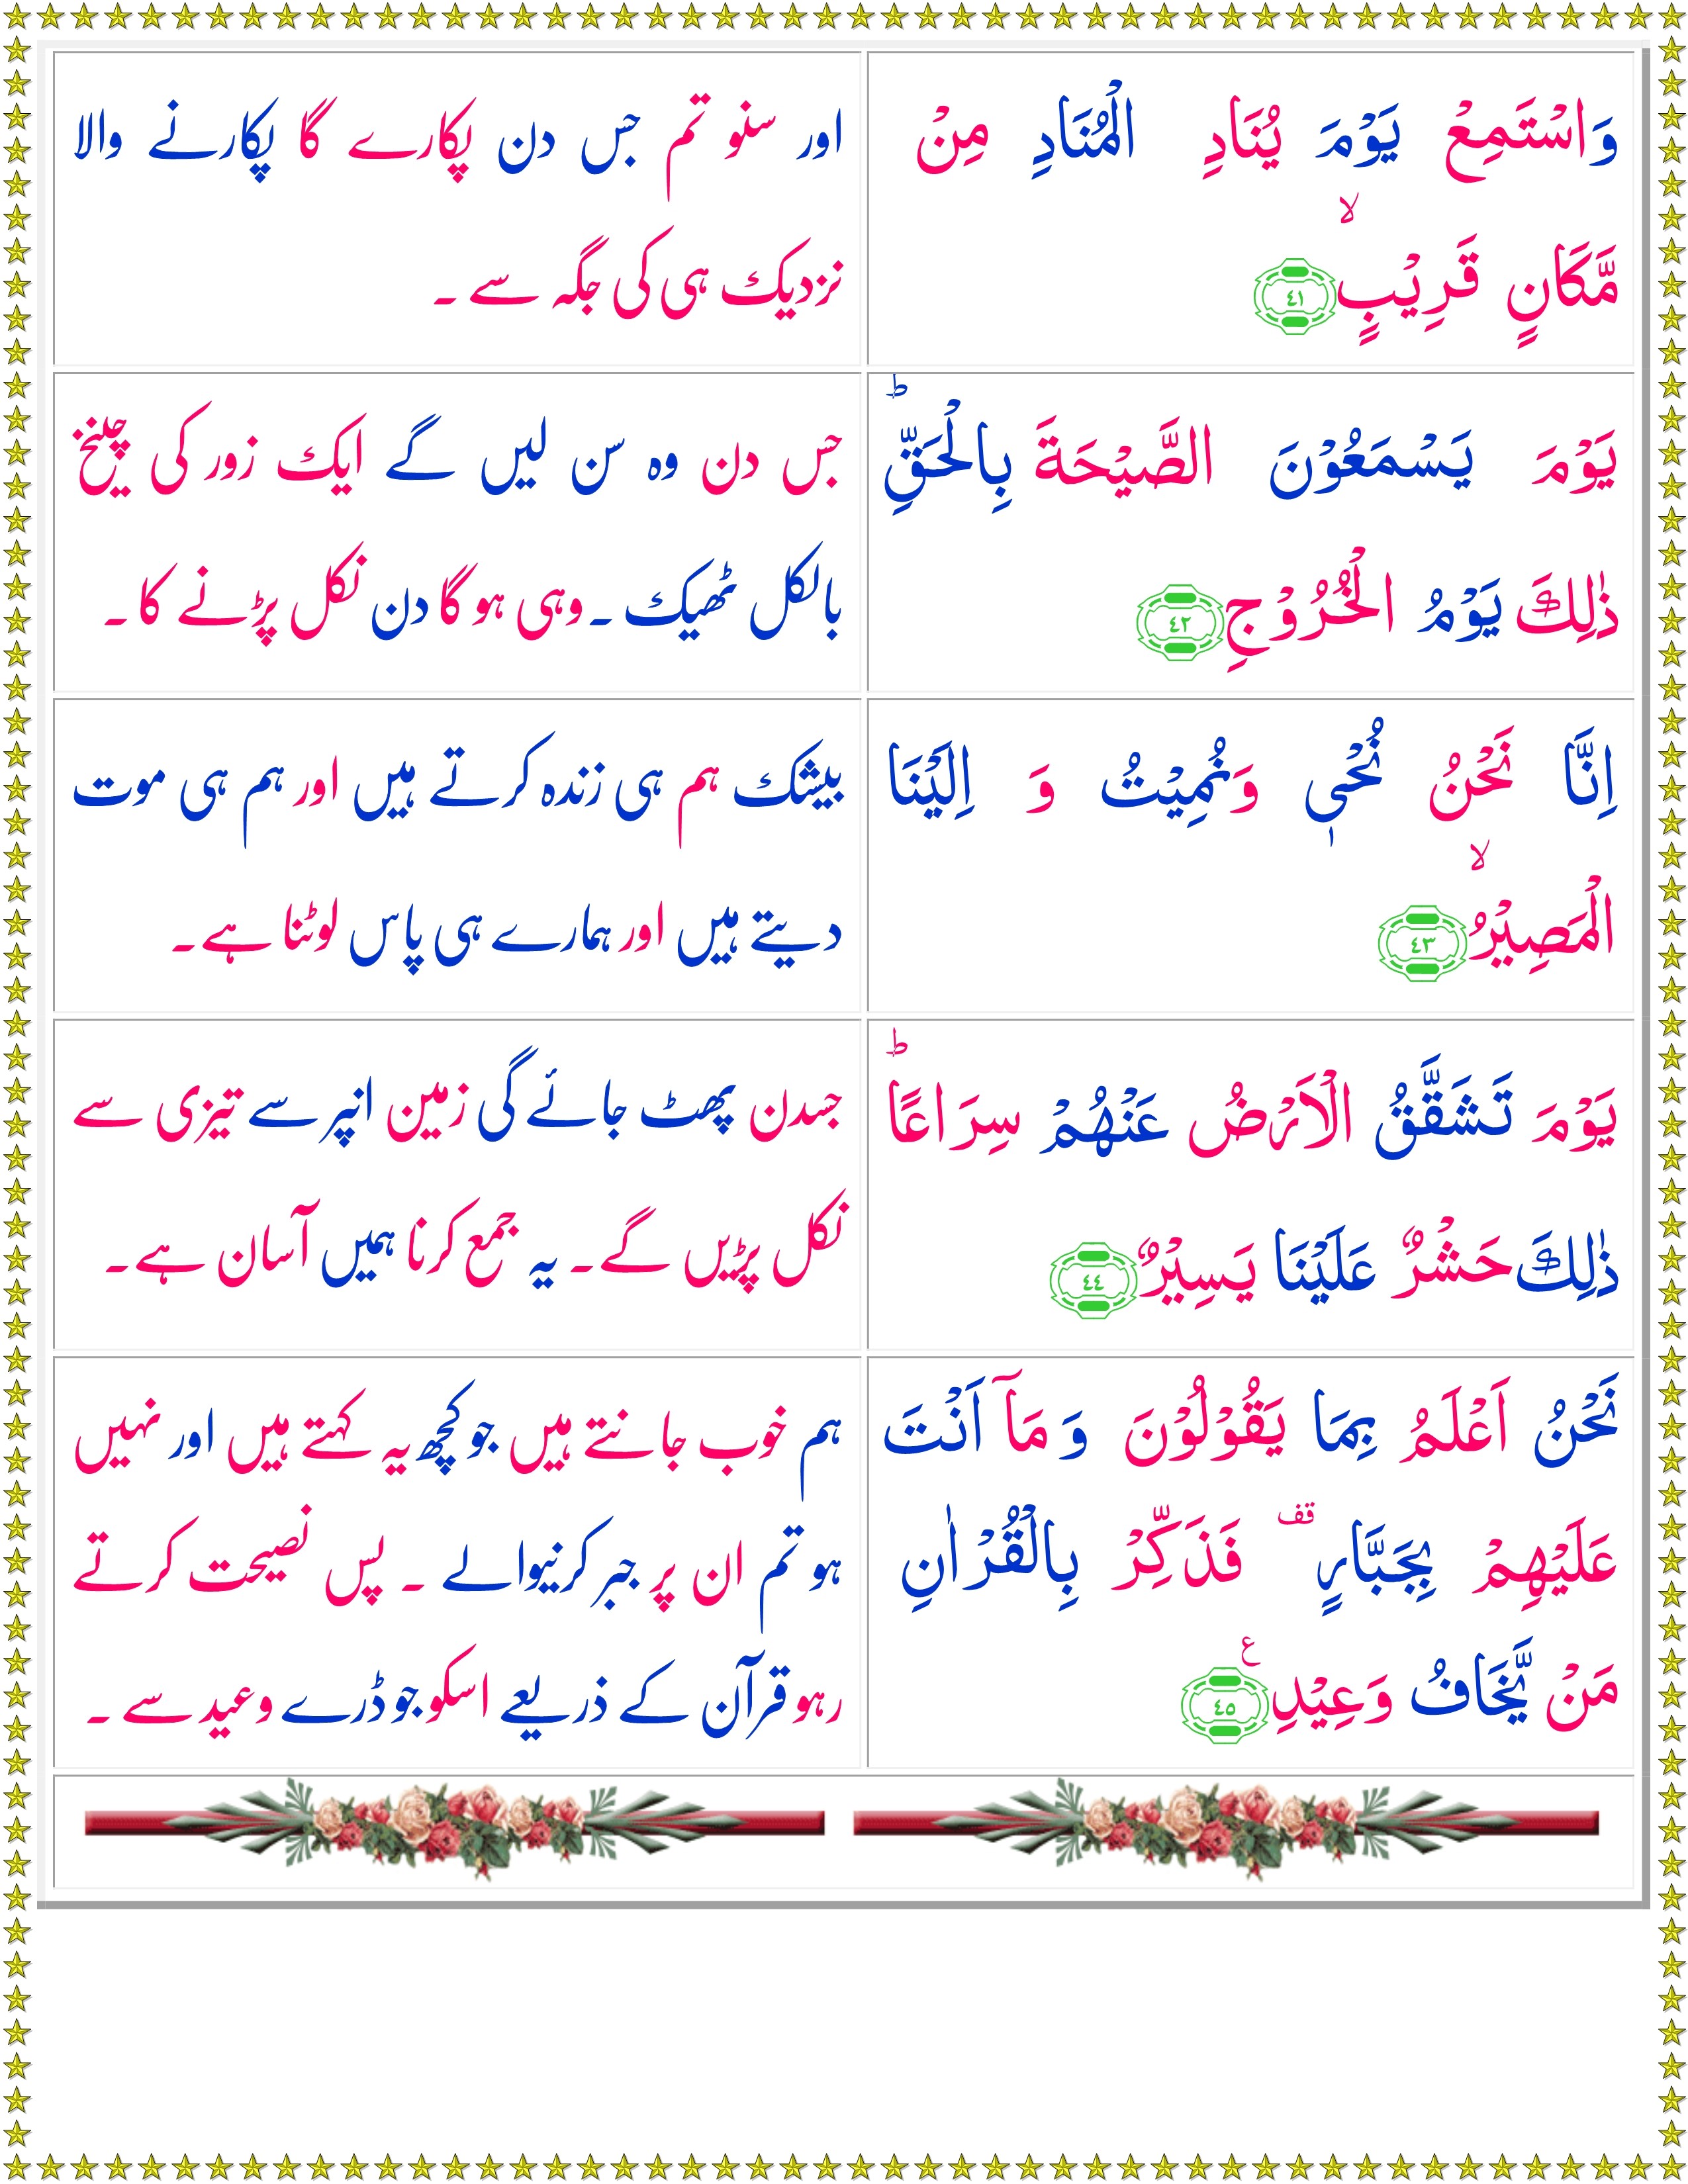 وَاسْتَمِعْ يَوْمَ يُنَادِ الْمُنَادِ مِنْ
مَّكَانٍ قَرِيْبٍۙ ٤١
اور سنو تم جس دن پکارے گا پکارنے والا
نزدیک ہی کی جگہ سے ۔
يَوْمَ يَسْمَعُوْنَ الصَّيْحَةَ بِالْحَقِّؕ
ذٰلِكَ يَوْمُ الْخُرُوْجِ ٤٢
جس دن وہ سن لیں گے ایک زور کی چیخ
بالکل ٹھیک ۔ وہی ہو گا دن نکل پڑنے کا ۔
اِنَّا نَحْنُ نُحْیٖ وَنُمِيْتُ وَ اِلَيْنَا
الْمَصِيْرُۙ ٤٣
بیشک ہم ہی زندہ کرتے ہیں اور ہم ہی موت
دیتے ہیں اور ہمارے ہی پاس لوٹنا ہے ۔
يَوْمَ تَشَقَّقُ الْاَرْضُ عَنْهُمْ سِرَاعًاؕ
ذٰلِكَ حَشْرٌ عَلَيْنَا يَسِيْرٌ ٤٤
جسدن پھٹ جائے گی زمین انپر سے تیزی سے
نکل پڑیں گے ۔ یہ جمع کرنا ہمیں آسان ہے ۔
نَحْنُ اَعْلَمُ بِمَا يَقُوْلُوْنَ وَ مَاۤ اَنْتَ
عَلَيْهِمْ بِجَبَّارٍ قف فَذَكِّرْ بِالْقُرْاٰنِ
مَنْ يَّخَافُ وَعِيْدِ ع ٤٥
ہم خوب جانتے ہیں جو کچھ یہ کہتے ہیں اور نہیں
ہو تم ان پر جبر کرنیوالے ۔ پس نصیحت کرتے
رہو قرآن کے ذریعے اسکو جو ڈرے وعید سے ۔